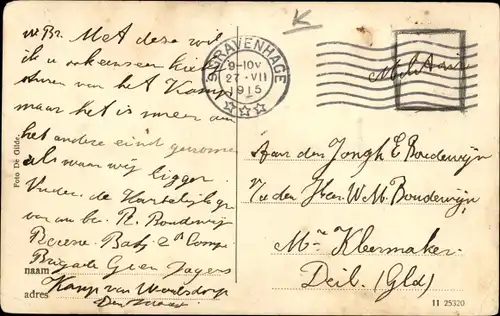 W. Br. Met deze wil
ik u ook eens een kiekje
sturen van het Kamp
maar het is meer aan
het andere eind genomen
als waar wij liggen
Verder de Hartelijkgr
van uw br. R. Boudewijn
Reserve Bat. 2e Comp
Brigade Gren Jagers
naam
adres Kamp van Waalsdorp
Den Haag
Foto De Gilde.
'S GRAVENHAGE
9-10V
27 · VII
1915
Militair
Aan den Jongh E Boudewijn
p/a den Heer W. M. Boudewijn
Mr Kleermaker
Deil. (Gld)
11 25320